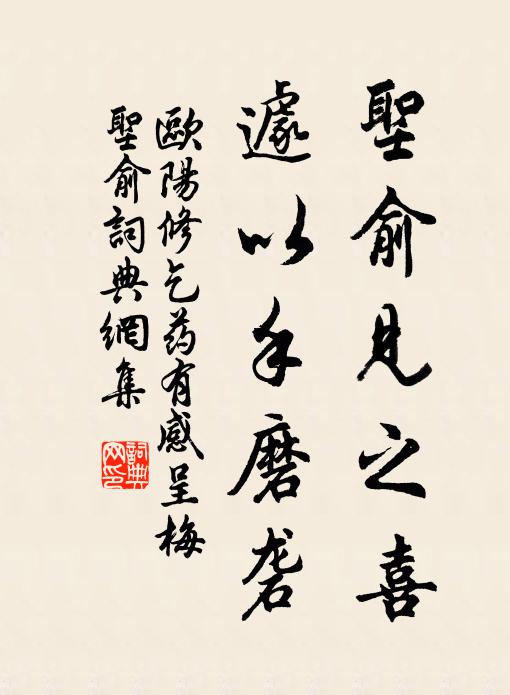 聖俞見之喜
遽以手磨砻
歐陽修乞药有感呈梅
聖俞詞典網集
詞典
网印